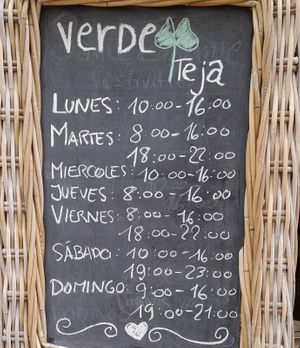 VERDE
TEJA
LUNES: 10:00-16:00
MARTES: 8:00-16:00
18:00-22:00
MIERCOLES: 10:00-16:00
JUEVES: 8:00-16:00
VIERNES: 8:00-16:00
18:00-22:00
SÁBADO: 10:00-16:00
19:00-23:00
DOMINGO: 9:00-16:00
19:00-21:00